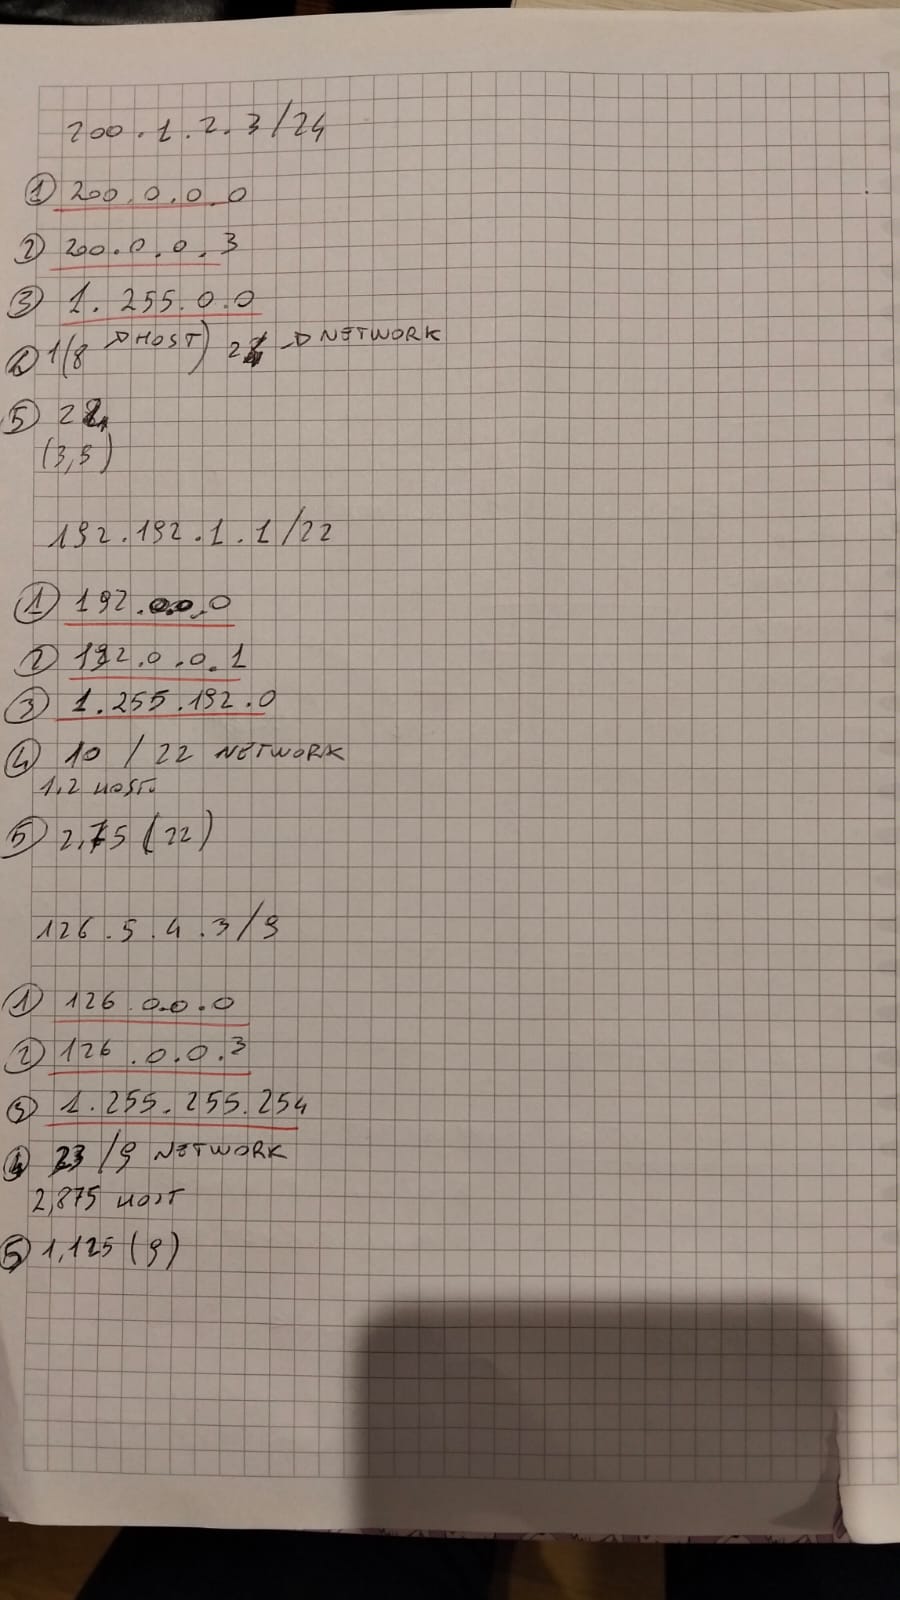 200.1.2.3/24
① 200.0.0.0
② 200.0.0.3
③ 1.255.0.0
④ 1(8 → HOST) 24 → NETWORK
⑤ 2
(3,5)
192.192.1.1/22
① 192.0.0.0
② 192.0.0.1
③ 1.255.192.0
④ 10 / 22 NETWORK
1.2 HOST
⑤ 2,75 (22)
126.5.4.3/9
① 126.0.0.0
② 126.0.0.3
③ 1.255.255.254
④ 23 /9 NETWORK
2,875 HOST
⑤ 1,125 (9)